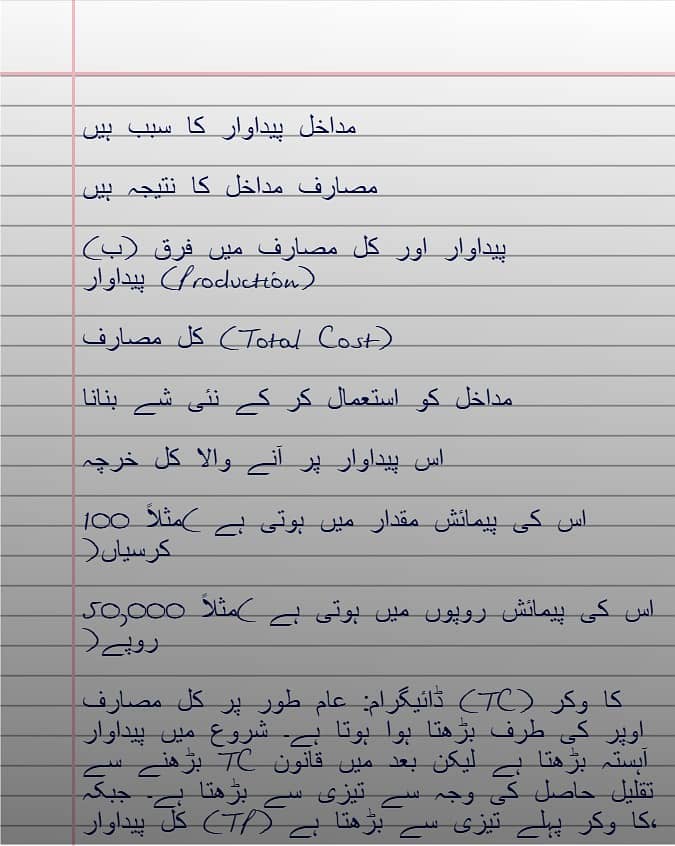 مداخل پیداوار کا سبب ہیں
مصارف مداخل کا نتیجہ ہیں
پیداوار اور کل مصارف میں فرق (ب)
پیداوار (Production)
کل مصارف (Total Cost)
مداخل کو استعمال کر کے نئی شے بنانا
اس پیداوار پر آنے والا کل خرچہ
اس کی پیمائش مقدار میں ہوتی ہے (مثلاً 100
کرسیاں)
اس کی پیمائش روپوں میں ہوتی ہے (مثلاً 50,000
روپے)
کا وکر (TC) ڈائیگرام: عام طور پر کل مصارف
اوپر کی طرف بڑھتا ہوا ہوتا ہے۔ شروع میں پیداوار
آہستہ بڑھتا ہے لیکن بعد میں قانون TC بڑھنے سے
تقلیل حاصل کی وجہ سے تیزی سے بڑھتا ہے۔ جبکہ
کا وکر پہلے تیزی سے بڑھتا ہے (TP) کل پیداوار،